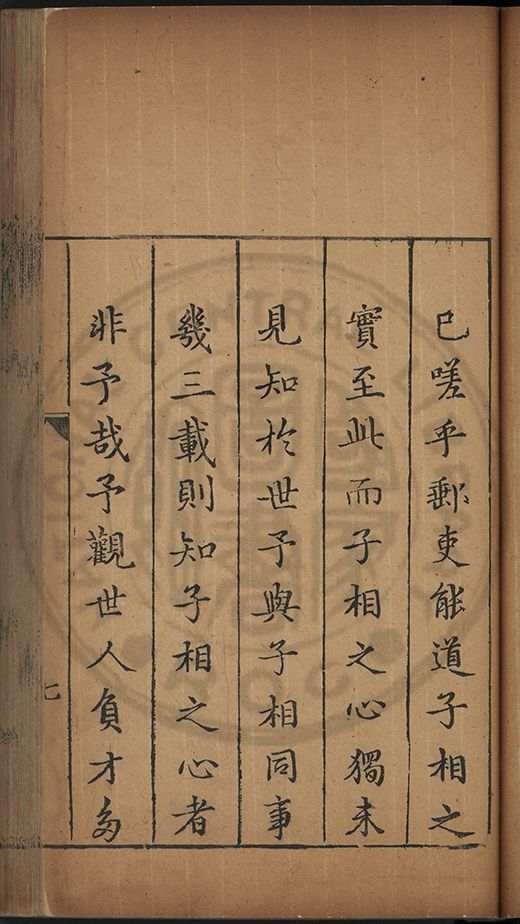 已嗟乎郵吏能道子相之
實至此而子相之心獨未
見知於世予與子相同事
幾三載則知子相之心者
非予哉予觀世人負才多
七